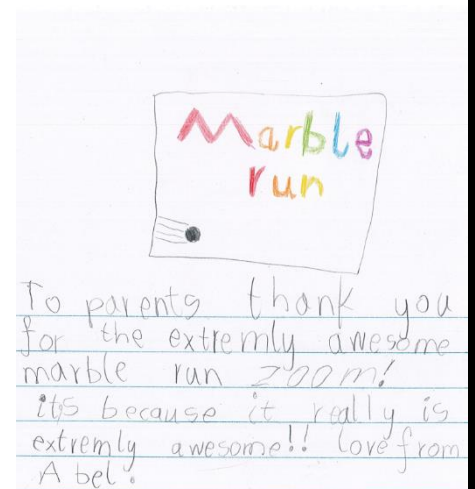 Marble
run
To parents thank you
for the extremly awesome
marble run zoom!
its because it really is
extremly awesome!! love from
Abel.